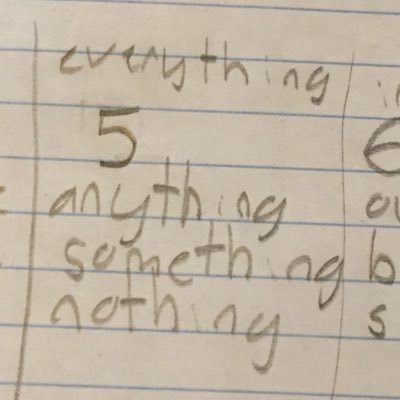 everything
5 6
anything
something b
nothing s